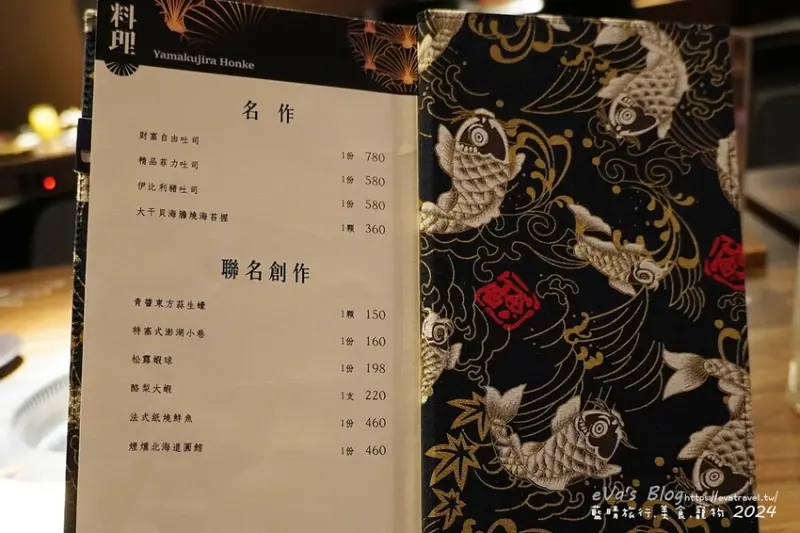 料理
Yamakujira Honke
名作
財富自由吐司 1份 780
精品菲力吐司 1份 580
伊比利豬吐司 1份 580
大干貝海膽燒海苔握 1顆 360
聯名創作
青醬東方蒜生蠔 1顆 150
特塞式澎湖小卷 1份 160
松露蝦球 1份 198
酪梨大蝦 1支 220
法式紙燒鮮魚 1份 460
煙燻北海道圓鱈 1份 460
eVa's Blog https://evatravel.tw/
藍晴旅行.美食.寵物 2024